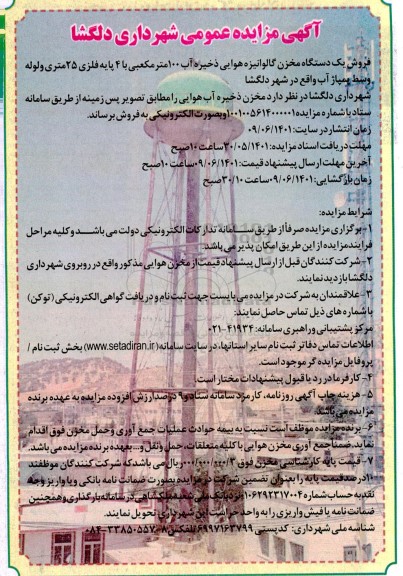 آگهی مزایده عمومی شهرداری دلگشا
فروش یک دستگاه مخزن گالوانیزه هوایی ذخیره آب ۱۰۰متر مکعبی با ۴ پایه فلزی ۲۵متری ولوله
وسط پمپاژ آب واقع در شهر دلگشا
شهرداری دلگشا در نظر دارد مخزن ذخیره آب هوایی را مطابق تصویر پس زمینه از طریق سامانه
ستاد با شماره مزایده وبصورت الکترونیکی به فروش برساند.
زمان انتشار در سایت: ۰۹/۰۶/۱۴۰۱
مهلت دریافت اسناد مزایده: ۳۰/۰۵/۱۴۰۱ساعت ۱۰صبح
آخرین مهلت ارسال پیشنهاد قیمت: ۰۹/۰۶/۱۴۰۱ساعت ۱۰صبح
زمان بازگشایی: ۰۹/۰۶/۱۴۰۱ساعت ۱۰/۳۰صبح
شرایط مزایده:
۱- برگزاری مزایده صرفاً از طریق سامانه تدارکات الکترونیکی دولت می باشد و کلیه مراحل
فرایند مزایده از این طریق امکان پذیر می باشد.
۲- شرکت کنندگان قبل از ارسال پیشنهاد قیمت از مخزن هوایی مذکور واقع در روبروی شهرداری
دلگشا بازدید نمایند.
۳- علاقمندان به شرکت در مزایده می بایست جهت ثبت نام و دریافت گواهی الکترونیکی (توکن)
با شماره های ذیل تماس حاصل نمایند:
مرکز پشتیبانی و راهبری سامانه: ۴۱۹۳۴-۰۲۱
اطلاعات تماس دفاتر ثبت نام سایر استانها، در سایت سامانه (www.setadiran.ir) بخش ثبت نام /
پروفایل مزایده گر موجود است.
۴- کارفرما در رد یا قبول پیشنهادات مختار است.
۵- هزینه چاپ آگهی روزنامه، کارمزد سامانه ستاد و ۹ درصد ارزش افزوده مزایده به عهده برنده
مزایده می باشد.
۶- برنده مزایده موظف است نسبت به بیمه حوادث عملیات جمع آوری وحمل مخزن فوق اقدام
نماید. ضمنا جمع آوری مخزن هوایی با کلیه متعلقات، حمل ونقل و... بعهده برنده مزایده می باشد.
۷- قیمت پایه کارشناسی مخزن فوق ریال می باشد که شرکت کنندگان موظفند
۱۰درصد قیمت پایه را بعنوان تضمین شرکت در مزایده بصورت ضمانت نامه بانکی ویا واریز وجه
نقد به حساب شماره نزد بانک ملی شعبه ملکشاهی در سامانه بارگذاری وهمچنین
ضمانت نامه یا فیش واریزی را به واحد حراست این شهرداری تحویل نمایند.
شناسه ملی شهرداری: کدپستی ۶۹۹۷۱۶۳۷۹۹ تلفکس ۸-۳۳۸۵۰۵۵۷-۰۸۴